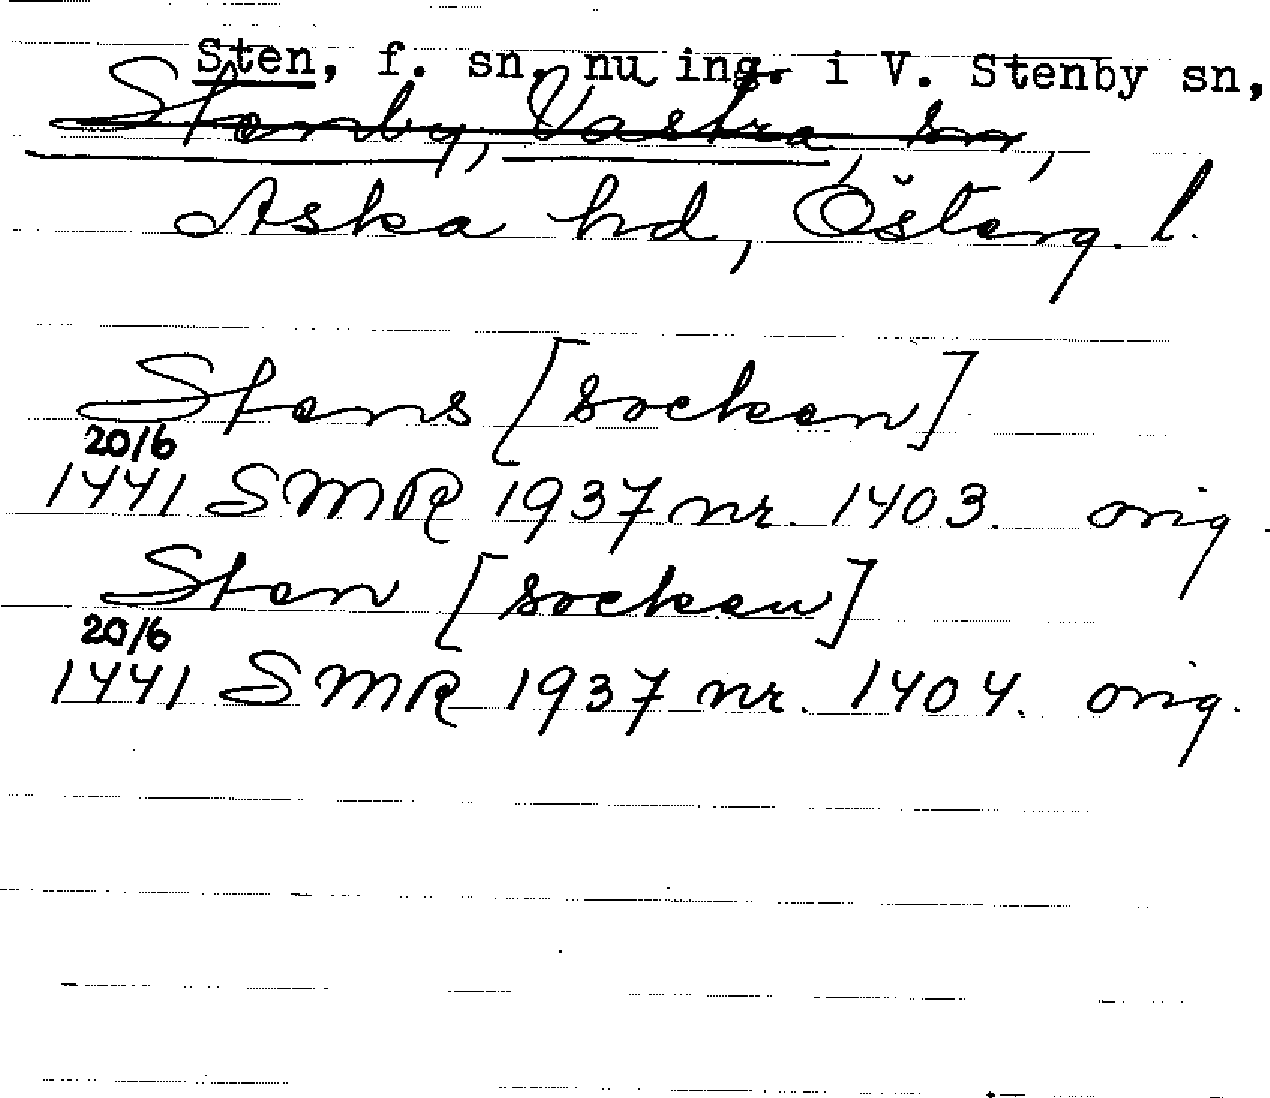 Sten, f. sn, nu ing. i V. Stenby sn,
Stenby, Västra, sn,
Aska hd, Österg. l.
Stens [socken]
20/6
1441 SMR 1937 nr. 1403. orig.
Sten [socken]
20/6
1441 SMR 1937 nr. 1404. orig.